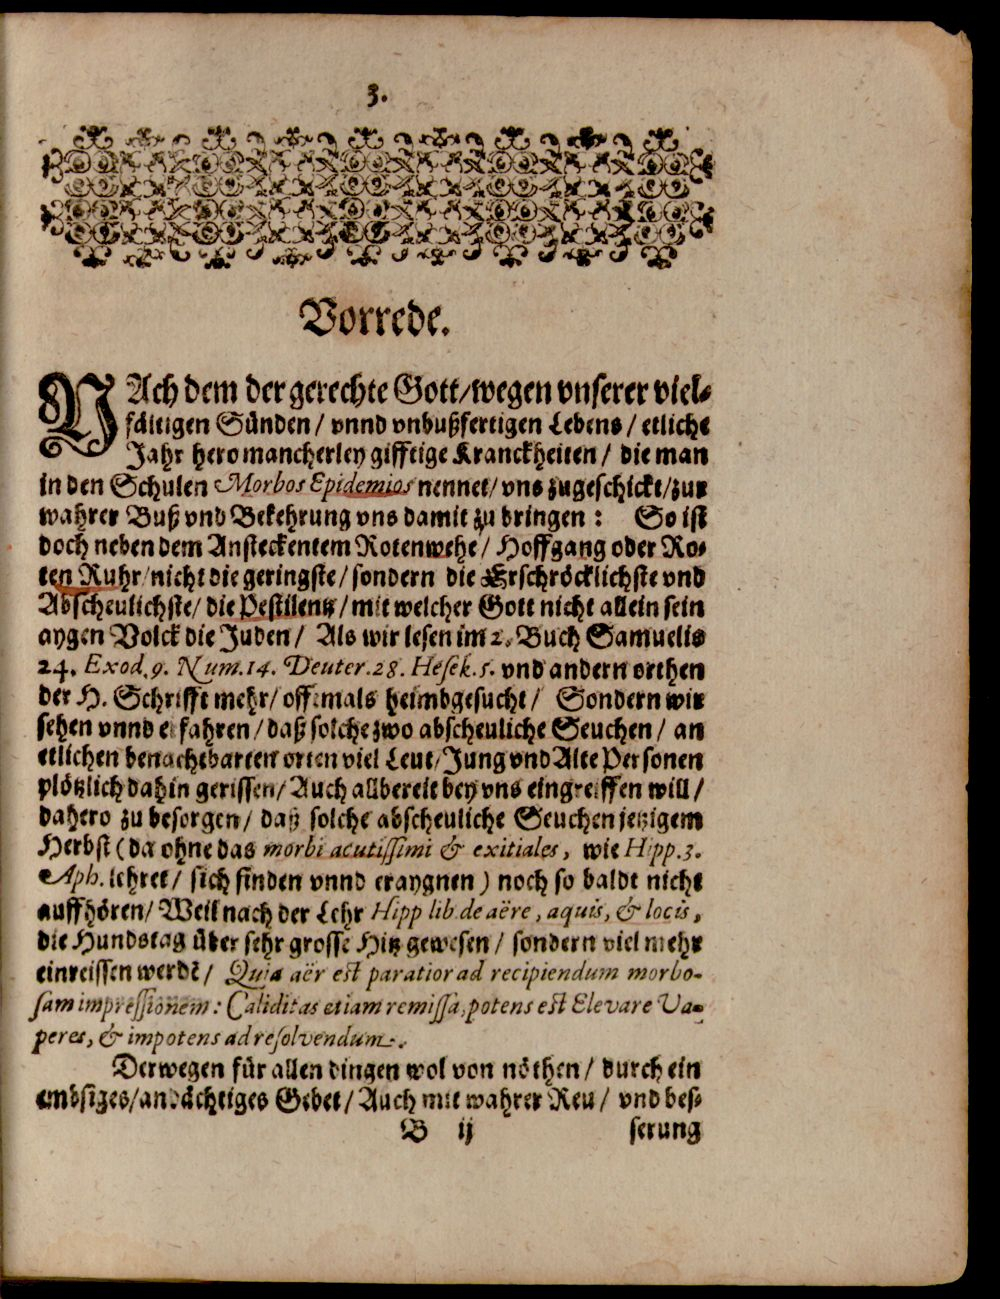 3.
Vorrede.
NAch dem der gerechte Gott/wegen vnserer viel-
fältigen Sünden / vnnd vnbußfertigen Lebens / etliche
Jahr hero mancherley gifftige Kranckheiten / die man
in den Schulen Morbos Epidemios nennet/ vns zugeschickt/zur
wahrer Buß vnd Bekehrung vns damit zu bringen : So ist
doch neben dem Ansteckentem Rotenwehe / Hoffgang oder Ro-
ten Ruhr/nicht die geringste / sondern die Erschröcklichste vnd
Abscheulichste/ die Pestilentz / mit welcher Gott nicht allein sein
aygen Volck die Juden / Als wir lesen im 2. Buch Samuelis
24. Exod.9. Num.14. Deuter.28. Hesek.5. vnd andern orthen
der H. Schrifft mehr/ offtmals heimbgesucht / Sondern wir
sehen vnnd erfahren / daß solche zwo abscheuliche Seuchen / an
etlichen benachtbarten orten viel Leut/Jung vnd Alte Personen
plötzlich dahin gerissen/ Auch allbereit bey vns eingreiffen will /
dahero zu besorgen/ daß solche abscheuliche Seuchen jetzigem
Herbst (da ohne das morbi acutissimi & exitiales, wie Hipp.3.
Aph. lehret / sich finden vnnd eraygnen ) noch so baldt nicht
auffhören/ Weil nach der Lehr Hipp lib de aëre, aquis, & locis,
die Hundstag über sehr grosse Hitz gewesen / sondern viel mehr
einreissen werdē / Quia aër est paratior ad recipiendum morbo-
sam impressionem : Caliditas etiam remissa, potens est Elevare Va-
peres, & impotens ad resolvendum.
Derwegen für allen dingen wol von nöthen / durch ein
embsiges/andächtiges Gebet / Auch mit wahrer Reu / vnd bes-
B ij serung